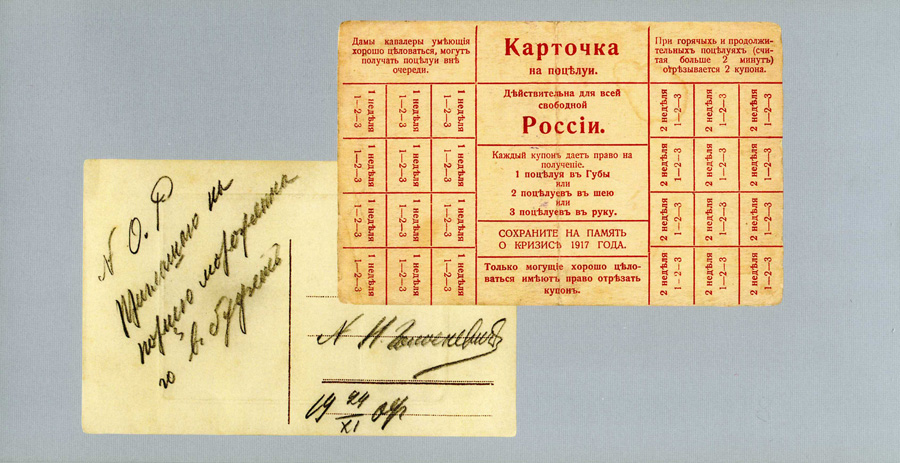 Дамы кавалеры умѣющія
хорошо цѣловаться, могутъ
получать поцѣлуи внѣ
очереди.
Карточка
на поцѣлуи.
При горячыхъ и продолжи-
тельныхъ поцѣлуяхъ (счи-
тая больше 2 минутъ)
отрѣзывается 2 купона.
Дѣйствительна для всей
свободной
Россіи.
Каждый купонъ даетъ право на
полученіе.
1 поцѣлуя въ Губы
или
2 поцѣлуевъ въ шею
или
3 поцѣлуевъ въ руку.
СОХРАНИТЕ НА ПАМЯТЬ
О КРИЗИСѢ 1917 ГОДА.
Только могущіе хорошо цѣло-
ваться имѣютъ право отрѣзать
купонъ.
1 недѣля
1—2—3
1 недѣля
1—2—3
1 недѣля
1—2—3
1 недѣля
1—2—3
1 недѣля
1—2—3
1 недѣля
1—2—3
1 недѣля
1—2—3
1 недѣля
1—2—3
1 недѣля
1—2—3
1 недѣля
1—2—3
1 недѣля
1—2—3
1 недѣля
1—2—3
2 недѣля
1—2—3
2 недѣля
1—2—3
2 недѣля
1—2—3
2 недѣля
1—2—3
2 недѣля
1—2—3
2 недѣля
1—2—3
2 недѣля
1—2—3
2 недѣля
1—2—3
2 недѣля
1—2—3
2 недѣля
1—2—3
2 недѣля
1—2—3
2 недѣля
1—2—3
N О. Р
на
порцію мороженка
въ буфетѣ
N Н.
19 24/XI